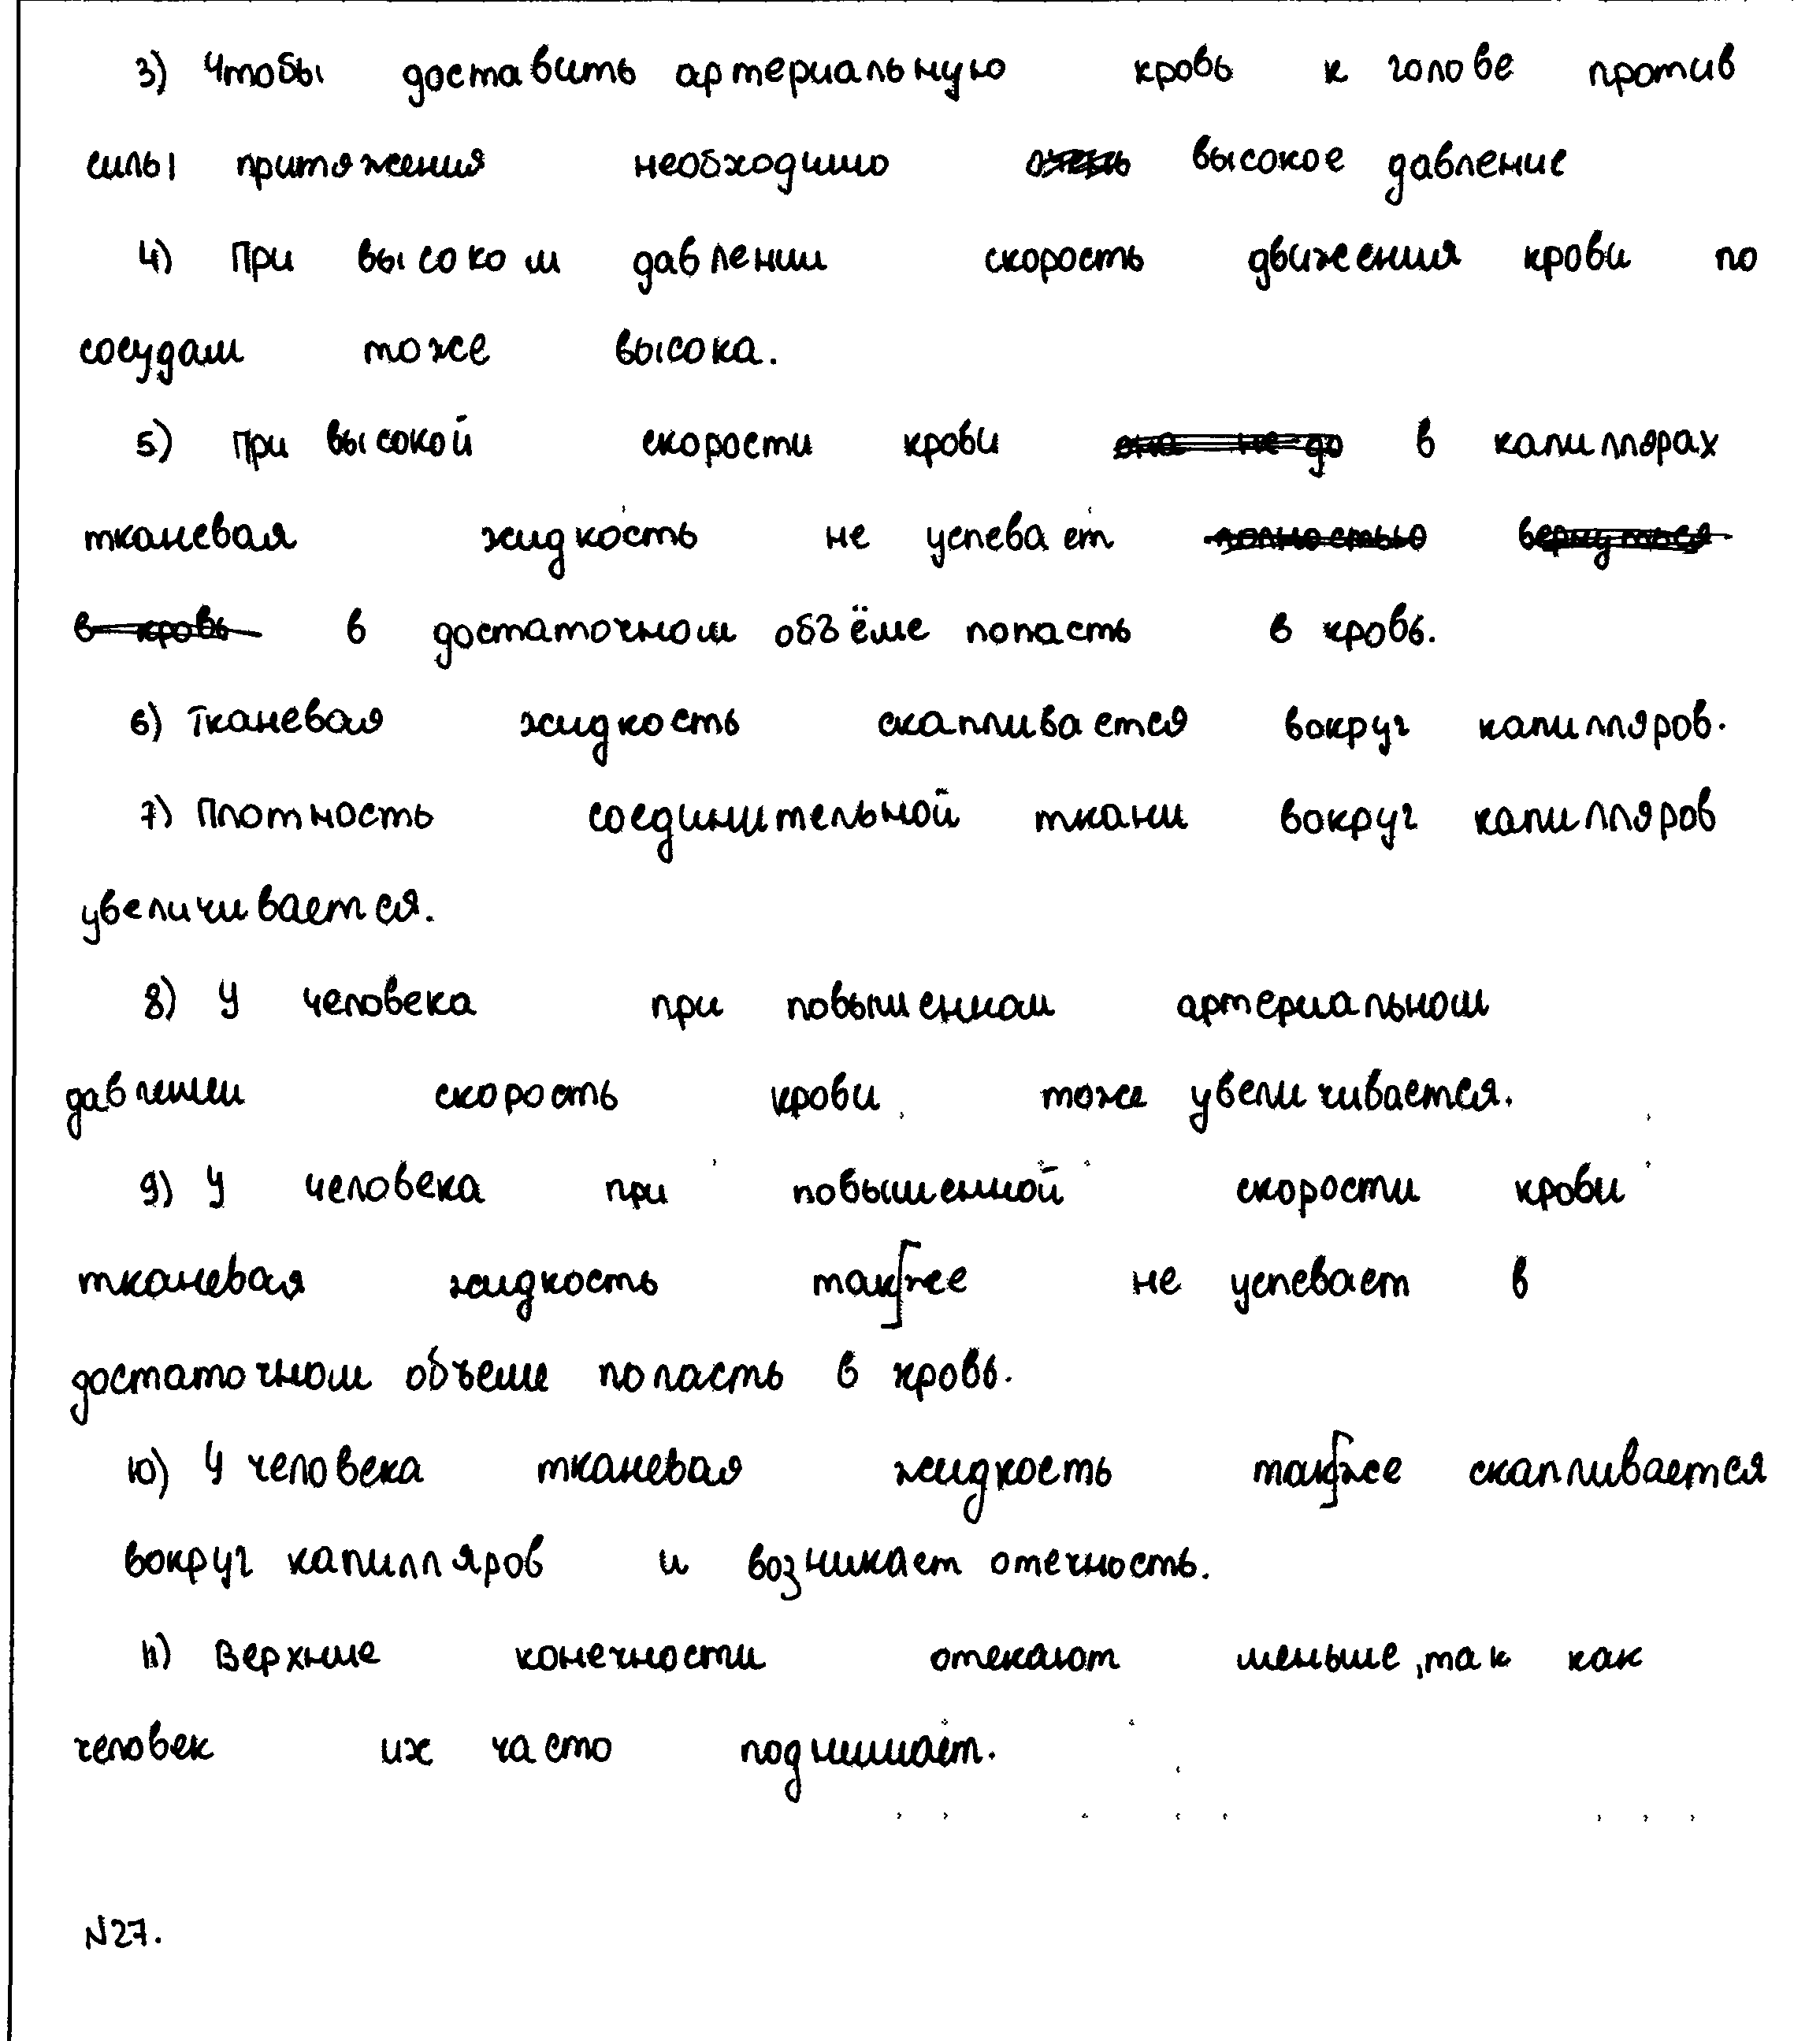 3) Чтобы доставить артериальную кровь к голове против
силы притяжения необходимо высокое давление
4) При высоком давлении скорость движения крови по
сосудам тоже высока.
5) При высокой скорости крови она не до в капиллярах
тканевая жидкость не успевает полностью вернуться
в кровь в достаточном объёме попасть в кровь.
6) Тканевая жидкость скапливается вокруг капилляров.
7) Плотность соединительной ткани вокруг капилляров
увеличивается.
8) У человека при повышенном артериальном
давлении скорость крови тоже увеличивается.
9) У человека при повышенной скорости крови
тканевая жидкость также не успевает в
достаточном объеме попасть в кровь.
10) У человека тканевая жидкость также скапливается
вокруг капилляров и возникает отечность.
11) Верхние конечности отекают меньше, так как
человек их часто поднимает.
N27.